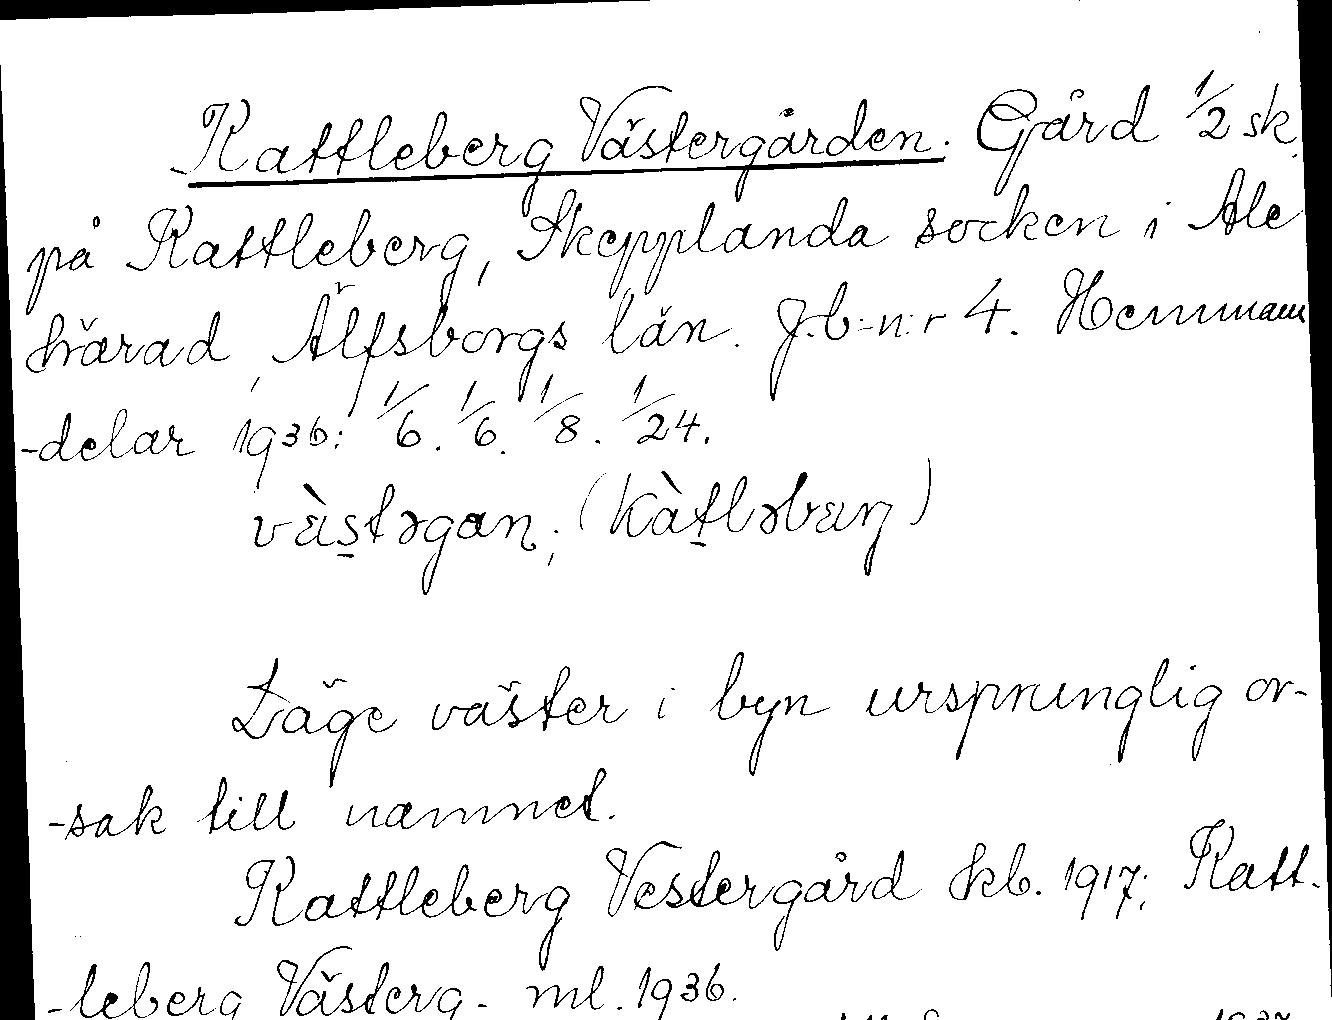 Kattleberg Västergården. Gård 1/2 sk.
på Kattleberg, Skepplanda socken i Ale
härad, Älfsborgs län. J.b-n:r 4. Hemmans
-delar 1936: 1/6. 1/6. 1/8. 1/24.
(kàtləbærj)
Läge väster i byn ursprunglig or-
-sak till namnet.
Kattleberg Vestergård skb. 1917; Katt-
-leberg Västerg- ml. 1936.